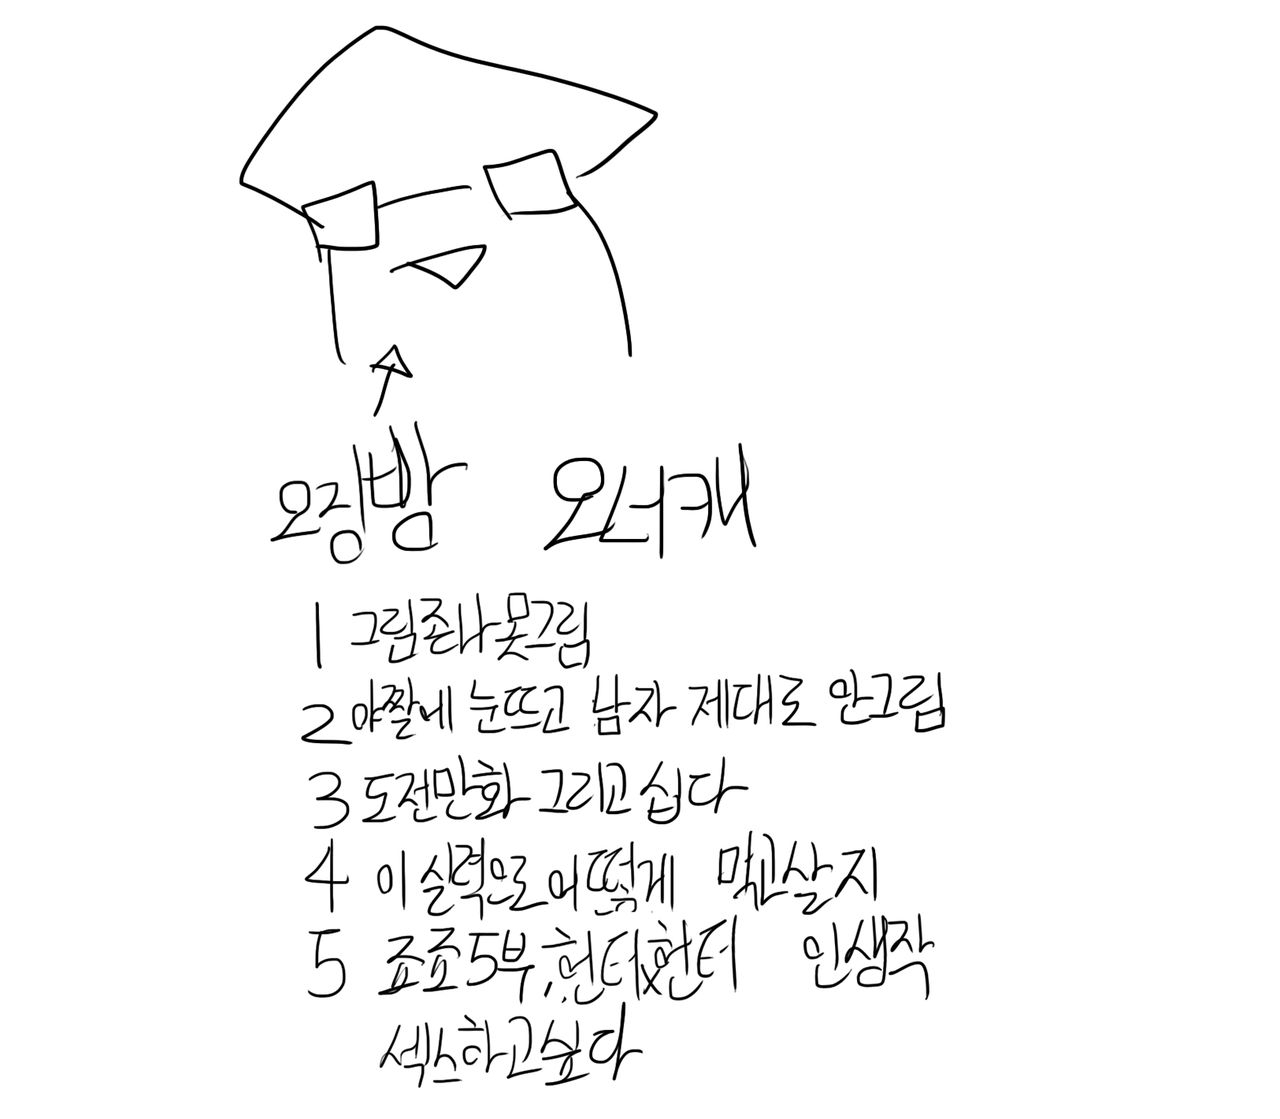 오징방 오너캐
1 그림존나못그림
2 야짤에 눈뜨고 남자 제대로 안그림
3 도전만화 그리고 십다
4 이 실력으로 어떻게 먹고살지
5 죠죠5부, 헌터x헌터 인생작
섹스하고싶다